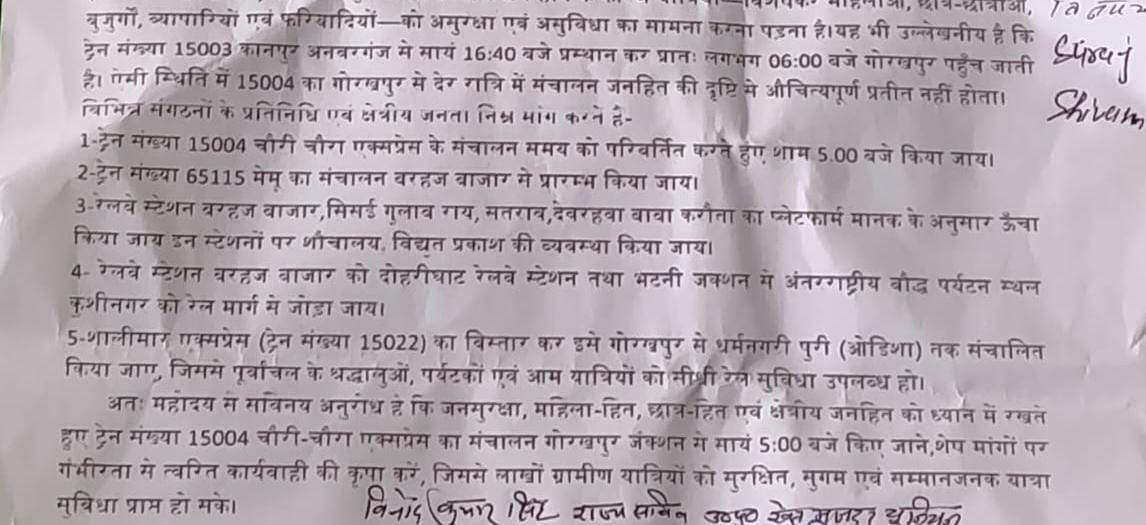 बुजुर्गों, व्यापारियों एवं फरियादियों—को असुरक्षा एवं असुविधा का सामना करना पड़ता है।यह भी उल्लेखनीय है कि
ट्रेन संख्या 15003 कानपुर अनवरगंज से सायं 16:40 बजे प्रस्थान कर प्रातः लगभग 06:00 बजे गोरखपुर पहुँच जाती
Suraj
है। ऐसी स्थिति में 15004 का गोरखपुर से देर रात्रि में संचालन जनहित की दृष्टि से औचित्यपूर्ण प्रतीत नहीं होता।
Shivam
विभिन्न संगठनों के प्रतिनिधि एवं क्षेत्रीय जनता निम्न मांग करते है-
1-ट्रेन संख्या 15004 चौरी चौरा एक्सप्रेस के संचालन समय को परिवर्तित करते हुए शाम 5.00 बजे किया जाय।
2-ट्रेन संख्या 65115 मेमू का संचालन बरहज बाजार से प्रारम्भ किया जाय।
3-रेलवे स्टेशन बरहज बाजार,सिसई गुलाब राय, सतराव,देवरहवा बाबा करौता का प्लेटफार्म मानक के अनुसार ऊँचा
किया जाय इन स्टेशनों पर शौचालय, विद्यत प्रकाश की व्यवस्था किया जाय।
4- रेलवे स्टेशन बरहज बाजार को दोहरीघाट रेलवे स्टेशन तथा भटनी जक्शन से अंतरराष्ट्रीय बौद्ध पर्यटन स्थल
कुशीनगर को रेल मार्ग से जोड़ा जाय।
5-शालीमार एक्सप्रेस (ट्रेन संख्या 15022) का विस्तार कर इसे गोरखपुर से धर्मनगरी पुरी (ओडिशा) तक संचालित
किया जाए, जिससे पूर्वांचल के श्रद्धालुओं, पर्यटकों एवं आम यात्रियों को सीधी रेल सुविधा उपलब्ध हो।
अतः महोदय से सविनय अनुरोध है कि जनसुरक्षा, महिला-हित, छात्र-हित एवं क्षेत्रीय जनहित को ध्यान में रखते
हुए ट्रेन संख्या 15004 चौरी-चौरा एक्सप्रेस का संचालन गोरखपुर जंक्शन से सायं 5:00 बजे किए जाने,शेष मांगों पर
गंभीरता से त्वरित कार्यवाही की कृपा करें, जिससे लाखों ग्रामीण यात्रियों को सुरक्षित, सुगम एवं सम्मानजनक यात्रा
सुविधा प्राप्त हो सके।
विनोद कुमार सिंह राज्य सचिव उ०प्र० खेत मजदूर यूनियन